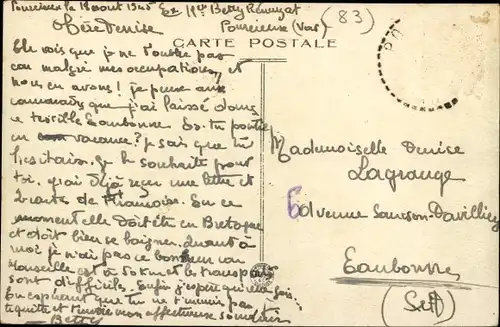 Pourcieux le 18 aout 1945 Ex Mlle Betty
Pourcieux (Var) (83)
Chère Denise
CARTE POSTALE
Tu vois que je ne t'oublie pas
car malgré mes occupations, et
nous en avons! je pense aux
camarades que j'ai laissé dans
ce terrible Eaubonne. Es-tu partie
en vacance? je sais que tu
hésitais. Je le souhaite pour
toi. J'ai déjà reçu une lettre et
2 cartes de Françoise. En ce
moment elle doit être en Bretagne
et doit bien se baigner. Quant à
moi je n'ai pas ce bonheur car
Marseille est à 50 km et les transports
sont difficiles. Enfin j'espère
En espérant que tu ne t'ennuies pas
je quitte et t'envoie mon affectueux souvenir
Betty
Mademoiselle Denise
Lagrange
6 Avenue Sanson-Davilliers
Eaubonne
(S et O)